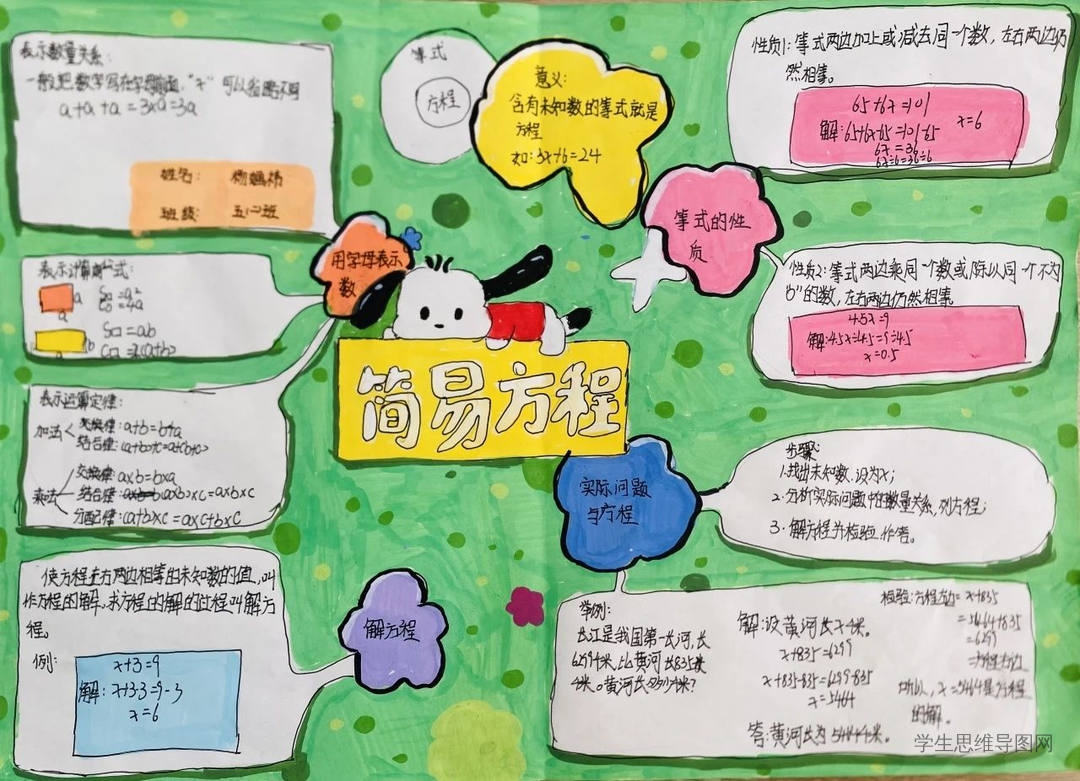 表示数量关系:
一般把数字写在字母前面,"×"可以省略不写
a+a+a=3×a=3a
姓名:
班级: 五(二)班
表示计算公式:
a
S□=a²
C□=4a
a
b
a
S□=ab
C□=2(a+b)
表示运算定律:
加法 交换律:a+b=b+a
结合律:(a+b)+c=a+(b+c)
乘法 交换律:a×b=b×a
结合律:(a×b)×c=a×b×c
分配律:(a+b)×c=a×c+b×c
使方程左右两边相等的未知数的值,叫
作方程的解,求方程的解的过程叫解方
程。
例:
x+3=9
解:x+3-3=9-3
x=6
用字母表示
数
解方程
简易方程
等式
方程
意义:
含有未知数的等式就是
方程
如:3x+6=24
等式的性
质
性质1:等式两边加上或减去同一个数,左右两边仍
然相等。
65+6x=101
解:65+6x-65=101-65
6x=36
6x÷6=36÷6
x=6
性质2:等式两边乘同一个数或除以同一个不为
"0"的数,左右两边仍然相等。
4.5x=9
解:4.5x÷4.5=9÷4.5
x=0.5
实际问题
与方程
步骤:
1.找出未知数,设为x;
2.分析实际问题中的数量关系,列方程;
3.解方程并检验作答。
举例:
长江是我国第一长河,长
6299千米,比黄河长835千
米。黄河长多少千米?
解:设黄河长x千米。
x+835=6299
x+835-835=6299-835
x=5464
答:黄河长为5464千米。
检验:方程左边=x+835
=5464+835
=6299
=方程右边
所以,x=5464是方程
的解。
学生思维导图网